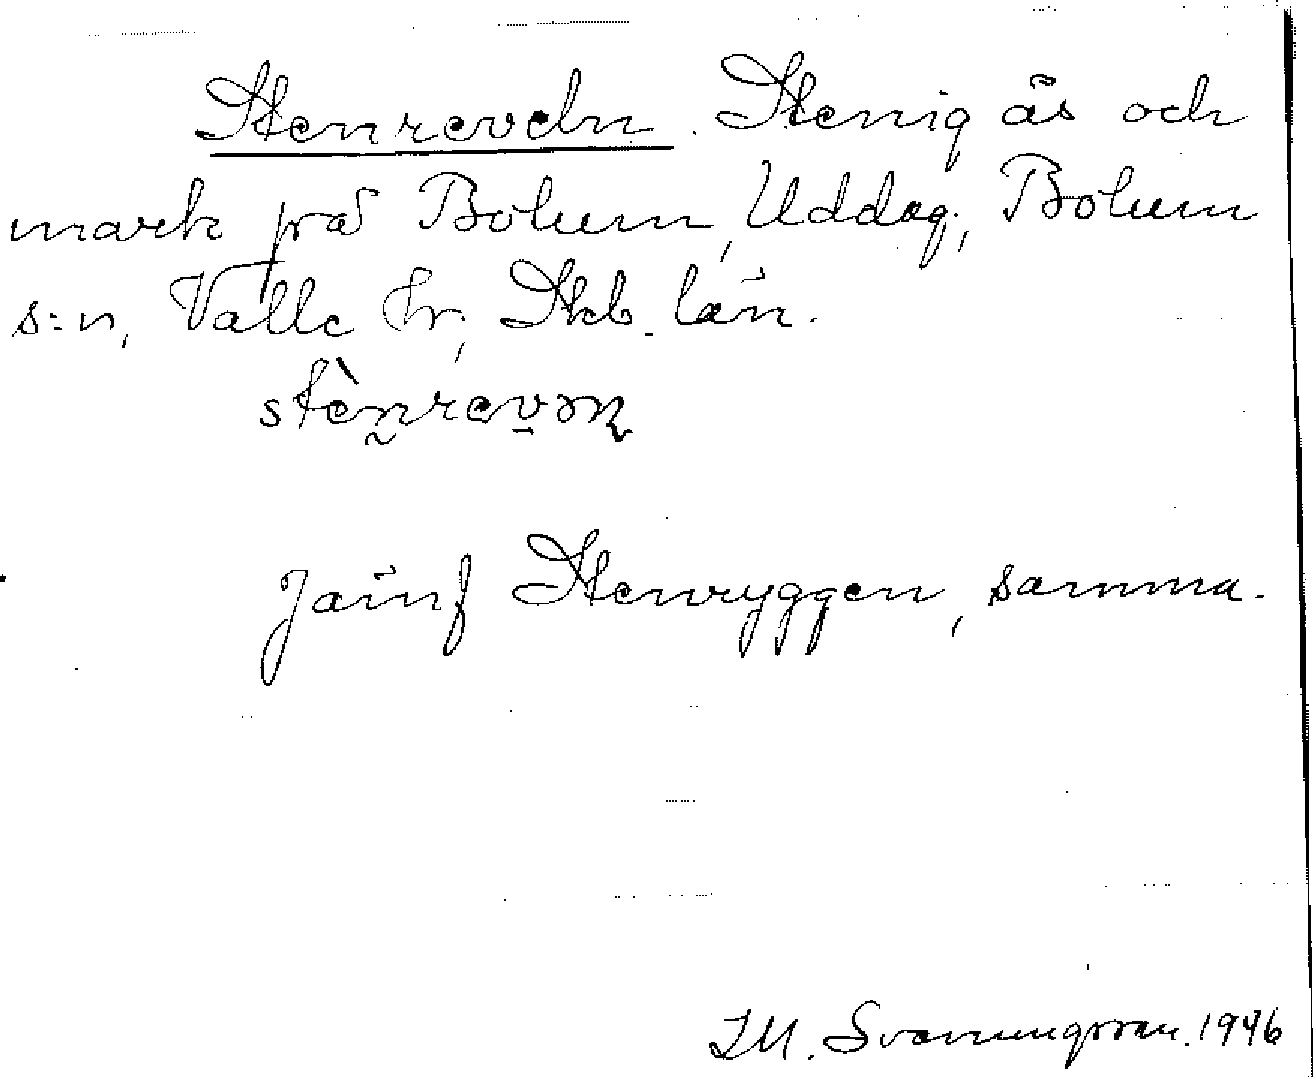 Stenreveln. Stenig ås och
mark på Bolum, Uddag., Bolum
s:n, Valle hr, Skb. län.
stènrevən
Jämf Stenryggen, samma.
I.M. Svanungsson. 1946